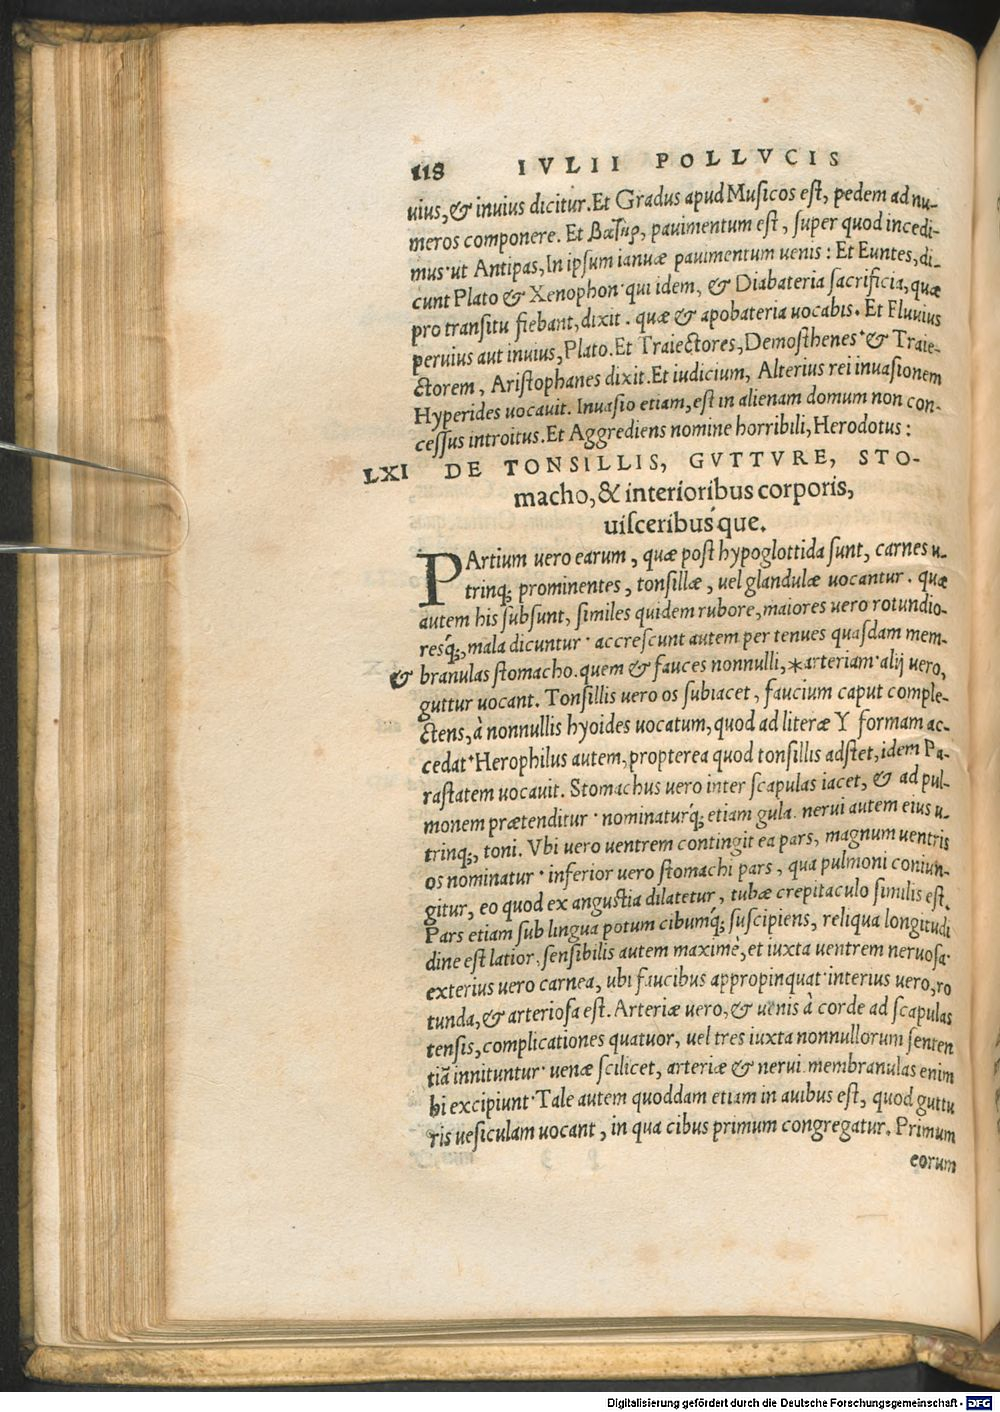 118 IVLII POLLVCIS
uius, & inuius dicitur. Et Gradus apud Musicos est, pedem ad nu-
meros componere. Et Βατὴρ, pauimentum est, super quod incedi-
mus· ut Antipas, In ipsum ianuæ pauimentum uenis: Et Euntes, di-
cunt Plato & Xenophon· qui idem, & Diabateria sacrificia, quæ
pro transitu fiebant, dixit. quæ & apobateria uocabis. Et Fluuius
peruius aut inuius, Plato. Et Traiectores, Demosthenes· & Traie-
ctorem, Aristophanes dixit. Et iudicium, Alterius rei inuasionem
Hyperides uocauit. Inuasio etiam, est in alienam domum non con-
cessus introitus. Et Aggrediens nomine horribili, Herodotus:
LXI DE TONSILLIS, GVTTVRE, STO-
macho, & interioribus corporis,
uisceribuśque.
PArtium uero earum, quæ post hypoglottida sunt, carnes u-
trinq; prominentes, tonsillæ, uel glandulæ uocantur. quæ
autem his subsunt, similes quidem rubore, maiores uero rotundio-
resq́;, mala dicuntur· accrescunt autem per tenues quasdam mem-
& branulas stomacho. quem & fauces nonnulli, *arteriam· alij uero,
guttur uocant. Tonsillis uero os subiacet, faucium caput comple-
ctens, à nonnullis hyoides uocatum, quod ad literæ Y formam ac-
cedat· Herophilus autem, propterea quod tonsillis adstet, idem Pa-
rastatem uocauit. Stomachus uero inter scapulas iacet, & ad pul-
monem prætenditur· nominaturq́; etiam gula. nerui autem eius u-
trinq;, toni. Vbi uero uentrem contingit ea pars, magnum uentris
os nominatur· inferior uero stomachi pars, qua pulmoni coniun-
gitur, eo quod ex angustia dilatetur, tubæ crepitaculo similis est.
Pars etiam sub lingua potum cibumq́; suscipiens, reliqua longitudi
dine est latior, sensibilis autem maximè, et iuxta uentrem neruosa·
exterius uero carnea, ubi faucibus appropinquat· interius uero, ro
tunda, & arteriosa est. Arteriæ uero, & uenis à corde ad scapulas
tensis, complicationes quatuor, uel tres iuxta nonnullorum senten
tiã innituntur· uenæ scilicet, arteriæ & nerui. membranulas enim
hi excipiunt· Tale autem quoddam etiam in auibus est, quod guttu
ris uesiculam uocant, in qua cibus primum congregatur. Primum
eorum
Digitalisierung gefördert durch die Deutsche Forschungsgemeinschaft - DFG